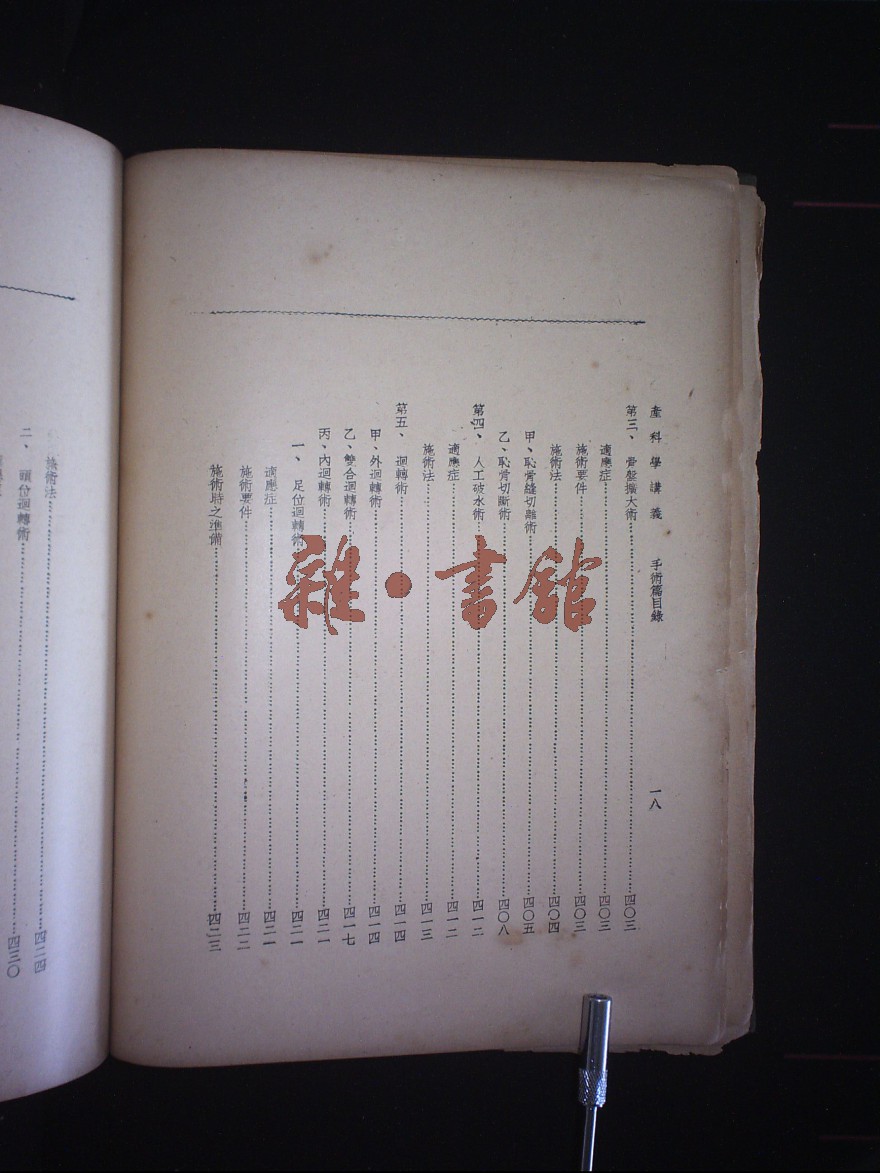 產科學講義　手術篇目錄　一八
第三、骨盤擴大術……四〇三
適應症……四〇三
施術要件……四〇三
施術法……四〇四
甲、恥骨縫切離術……四〇五
乙、恥骨切斷術……四〇八
第四、人工破水術……四一二
適應症……四一二
施術法……四一三
第五、迴轉術……四一四
甲、外迴轉術……四一四
乙、雙合迴轉術……四一七
丙、內迴轉術……四二一
一、足位迴轉術……四二一
適應症……四二一
施術要件……四二二
施術時之準備……四二三
施術法……四二四
二、頭位迴轉術……四三〇
雜·書館